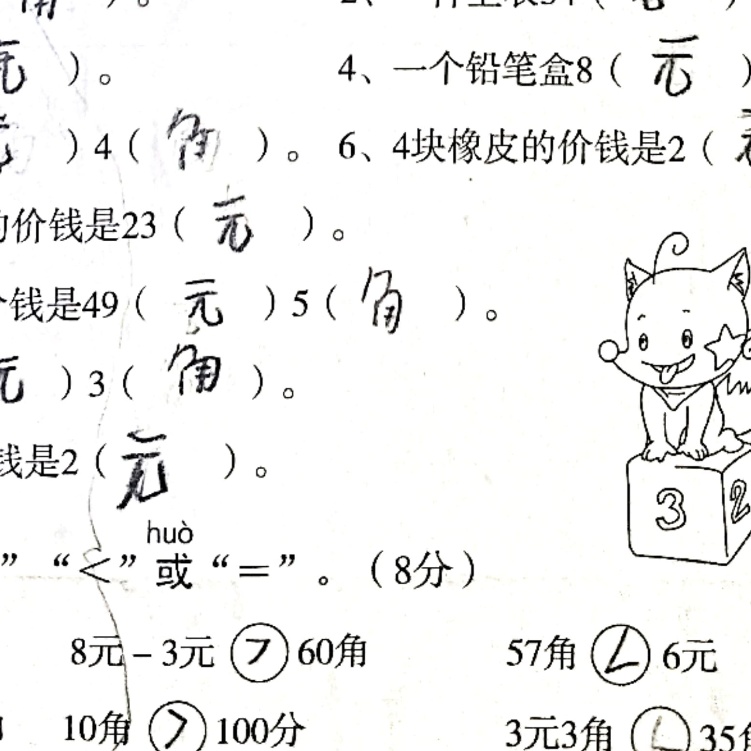 角）。 2、一件上衣54（元
元）。 4、一个铅笔盒8（元）
元）4（角）。 6、4块橡皮的价钱是2（元
的价钱是23（元）。
个钱是49（元）5（角）。
元）3（角）。
钱是2（元）。
3 2
huò
” “<” 或 “=” 。（8分）
8元－3元 > 60角 57角 < 6元
10角 > 100分 3元3角 < 35角